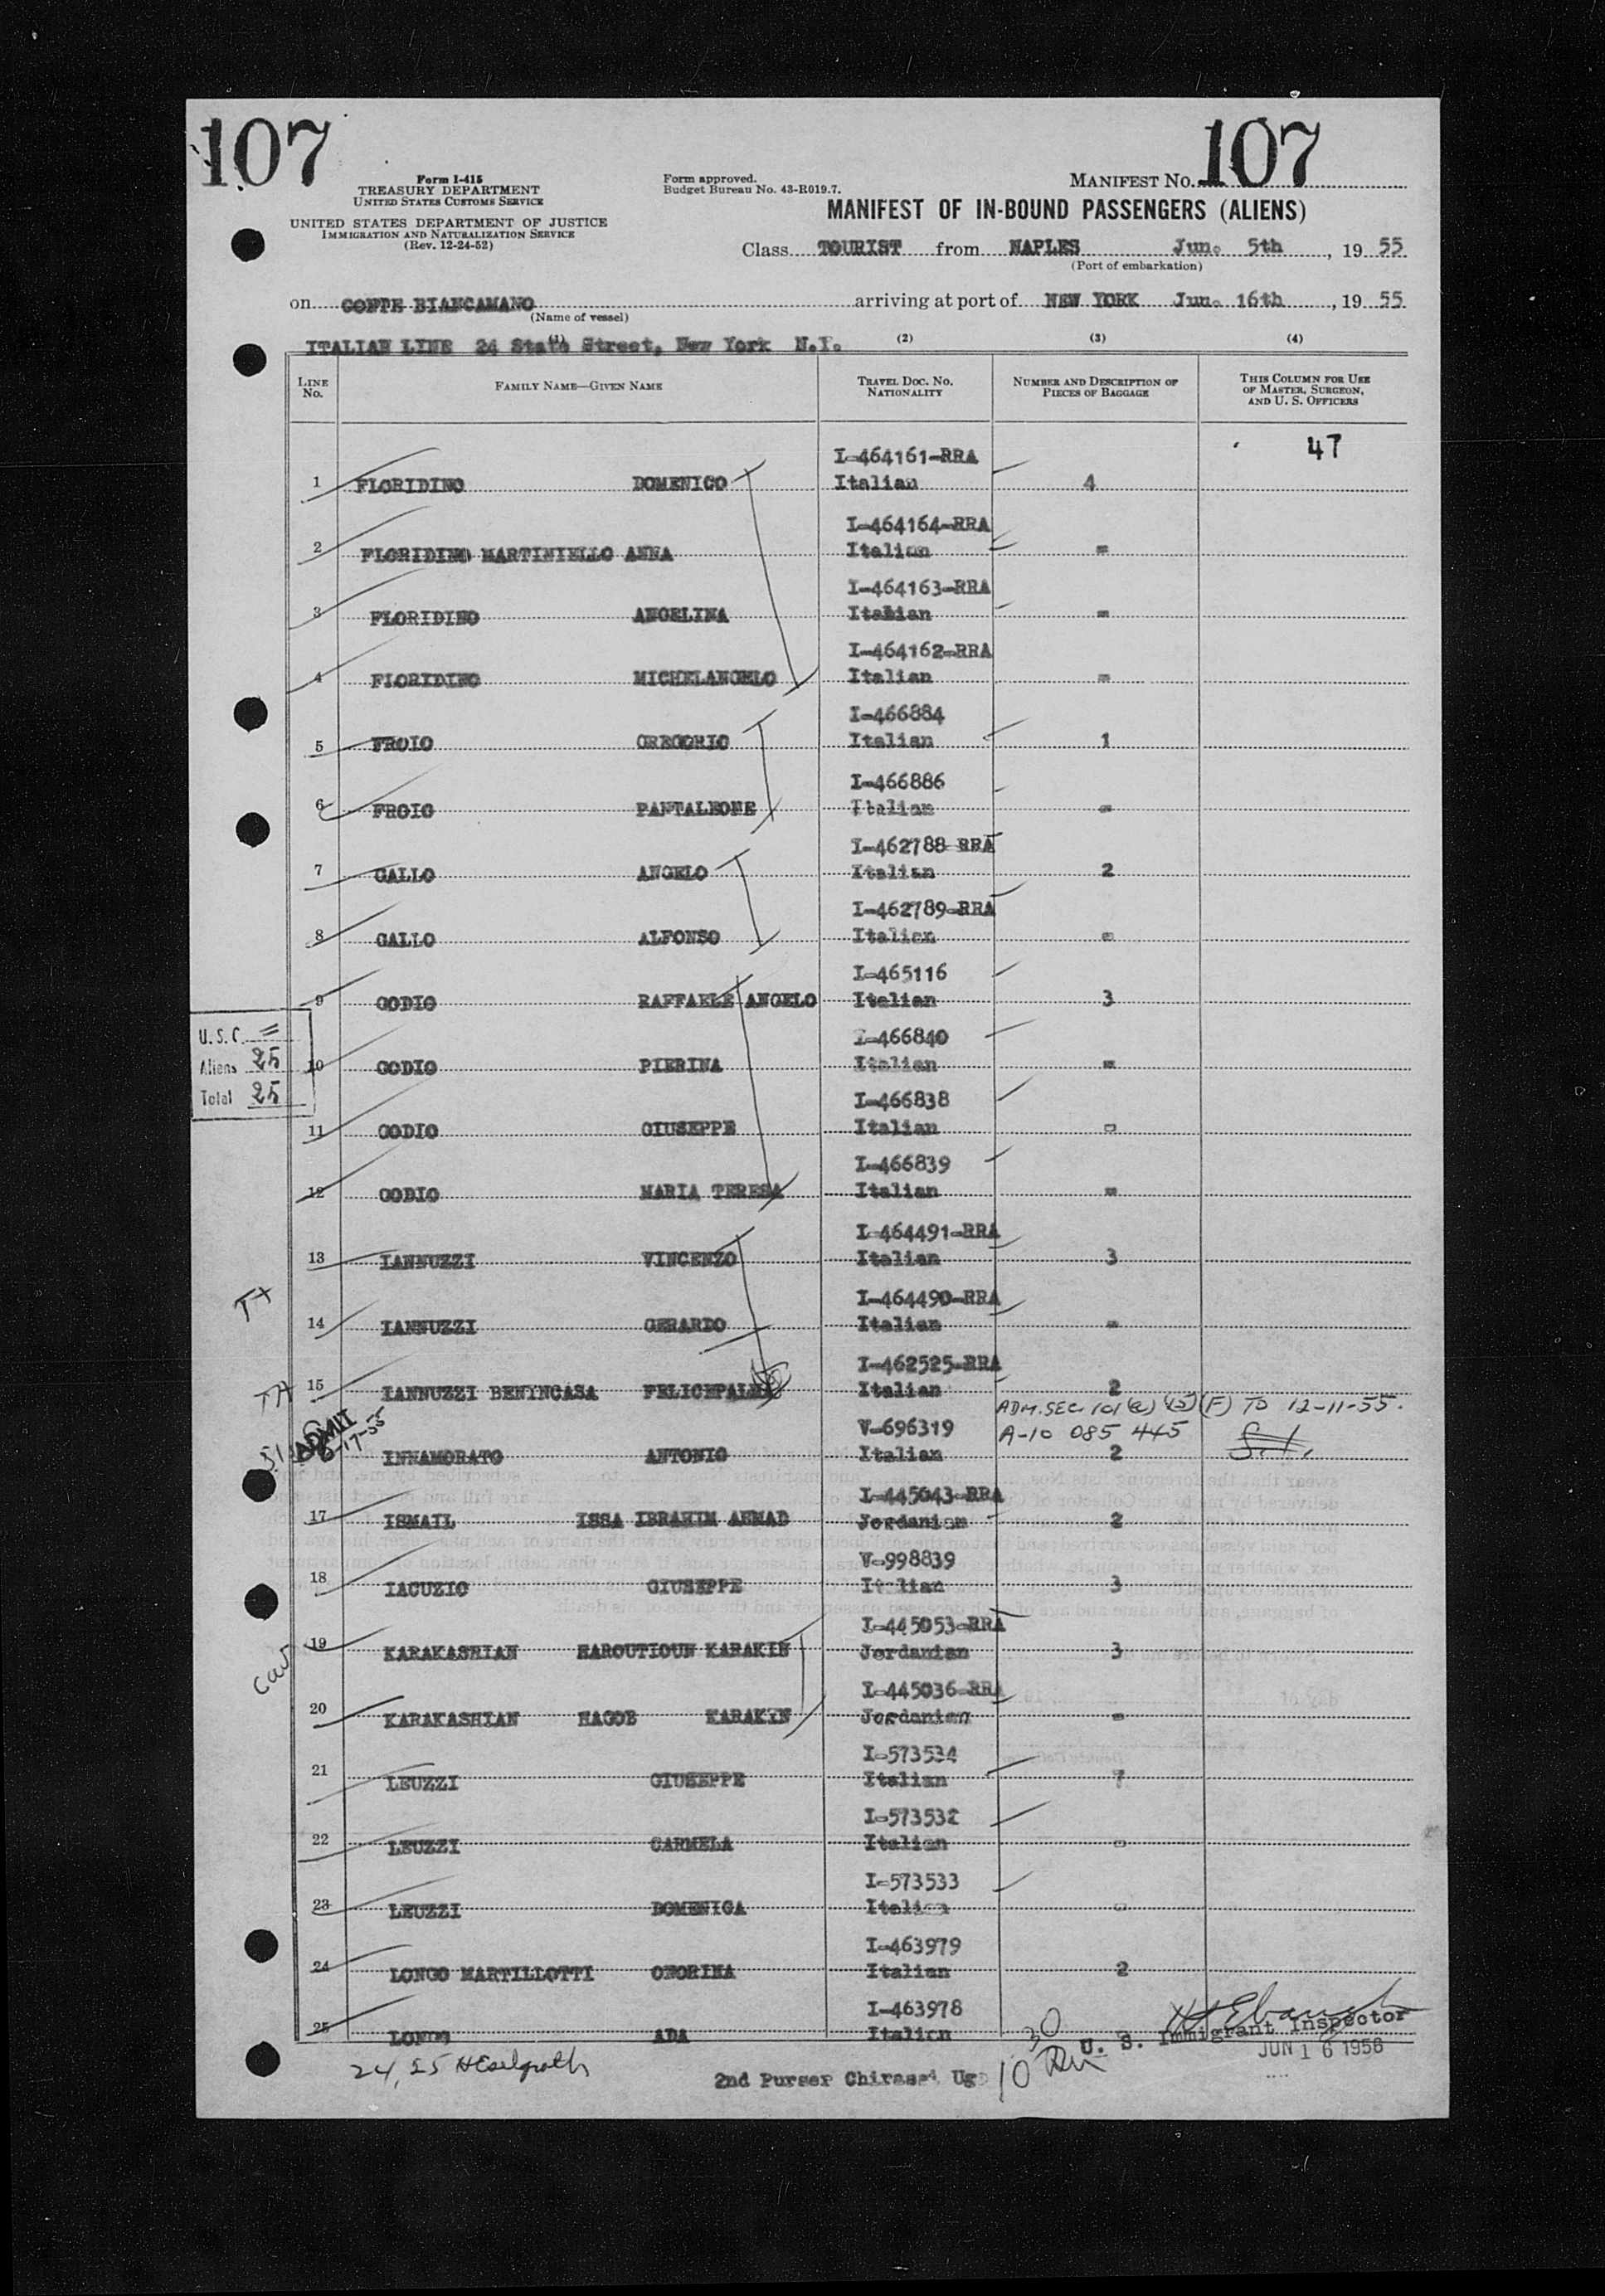 107
107
Form I-415
TREASURY DEPARTMENT
UNITED STATES CUSTOMS SERVICE
UNITED STATES DEPARTMENT OF JUSTICE
IMMIGRATION AND NATURALIZATION SERVICE
(Rev. 12-24-52)
Form approved.
Budget Bureau No. 43-R019.7.
MANIFEST NO.
MANIFEST OF IN-BOUND PASSENGERS (ALIENS)
Class TOURIST from NAPLES Jun. 5th, 19 55
(Port of embarkation)
on CONTE BIANCAMANO arriving at port of NEW YORK Jun. 16th, 19 55
(Name of vessel)
ITALIAN LINE 24 State Street, New York N.Y.
(1) (2) (3) (4)
LINE No. FAMILY NAME—GIVEN NAME TRAVEL DOC. NO. NATIONALITY NUMBER AND DESCRIPTION OF PIECES OF BAGGAGE THIS COLUMN FOR USE OF MASTER, SURGEON, AND U. S. OFFICERS
47
I-464161-RRA
1 FLORIDINO DOMENICO Italian 4
I-464164-RRA
2 FLORIDINO MARTINIELLO ANNA Italian =
I-464163-RRA
3 FLORIDINO ANGELINA Italian =
I-464162-RRA
4 FLORIDINO MICHELANGELO Italian =
I-466884
5 FROIO GREGORIO Italian 1
I-466886
6 FROIO PANTALEONE Italian =
I-462788-RRA
7 GALLO ANGELO Italian 2
I-462789-RRA
8 GALLO ALFONSO Italian =
I-465116
9 GODIO RAFFAELE ANGELO Italian 3
U.S.C. =
Aliens 25
Total 25
I-466840
10 GODIO PIERINA Italian =
I-466838
11 GODIO GIUSEPPE Italian =
I-466839
12 GODIO MARIA TERESA Italian =
I-464491-RRA
13 IANNUZZI VINCENZO Italian 3
I-464490-RRA
14 IANNUZZI GERARDO Italian =
I-462525-RRA
15 IANNUZZI BENINCASA Italian 2
ADM. SEC. 101 (a) (15) (F) TO 12-11-55.
V-696319 A-10 085 445 S.I.
ADMIT
6-17-55
INNAMORATO ANTONIO Italian 2
I-445043-RRA
17 ISMAIL ISSA IBRAHIM AHMAD Jordanian 2
V-998839
18 IACUZIO GIUSEPPE Italian 3
I-445053-RRA
19 KARAKASHIAN HAROUTIOUN KARAKIN Jordanian 3
I-445036-RRA
20 KARAKASHIAN HAGOB KARAKIN Jordanian =
I-573534
21 LEUZZI GIUSEPPE Italian 7
I-573532
22 LEUZZI CARMELA Italian =
I-573533
23 LEUZZI DOMENICA Italian =
I-463979
24 LONGO MARTILLOTTI ONORINA Italian 2
I-463978
25 LONGO ADA Italian
U. S. Immigrant Inspector
JUN 16 1956
24, 25
2nd Purser
30
10